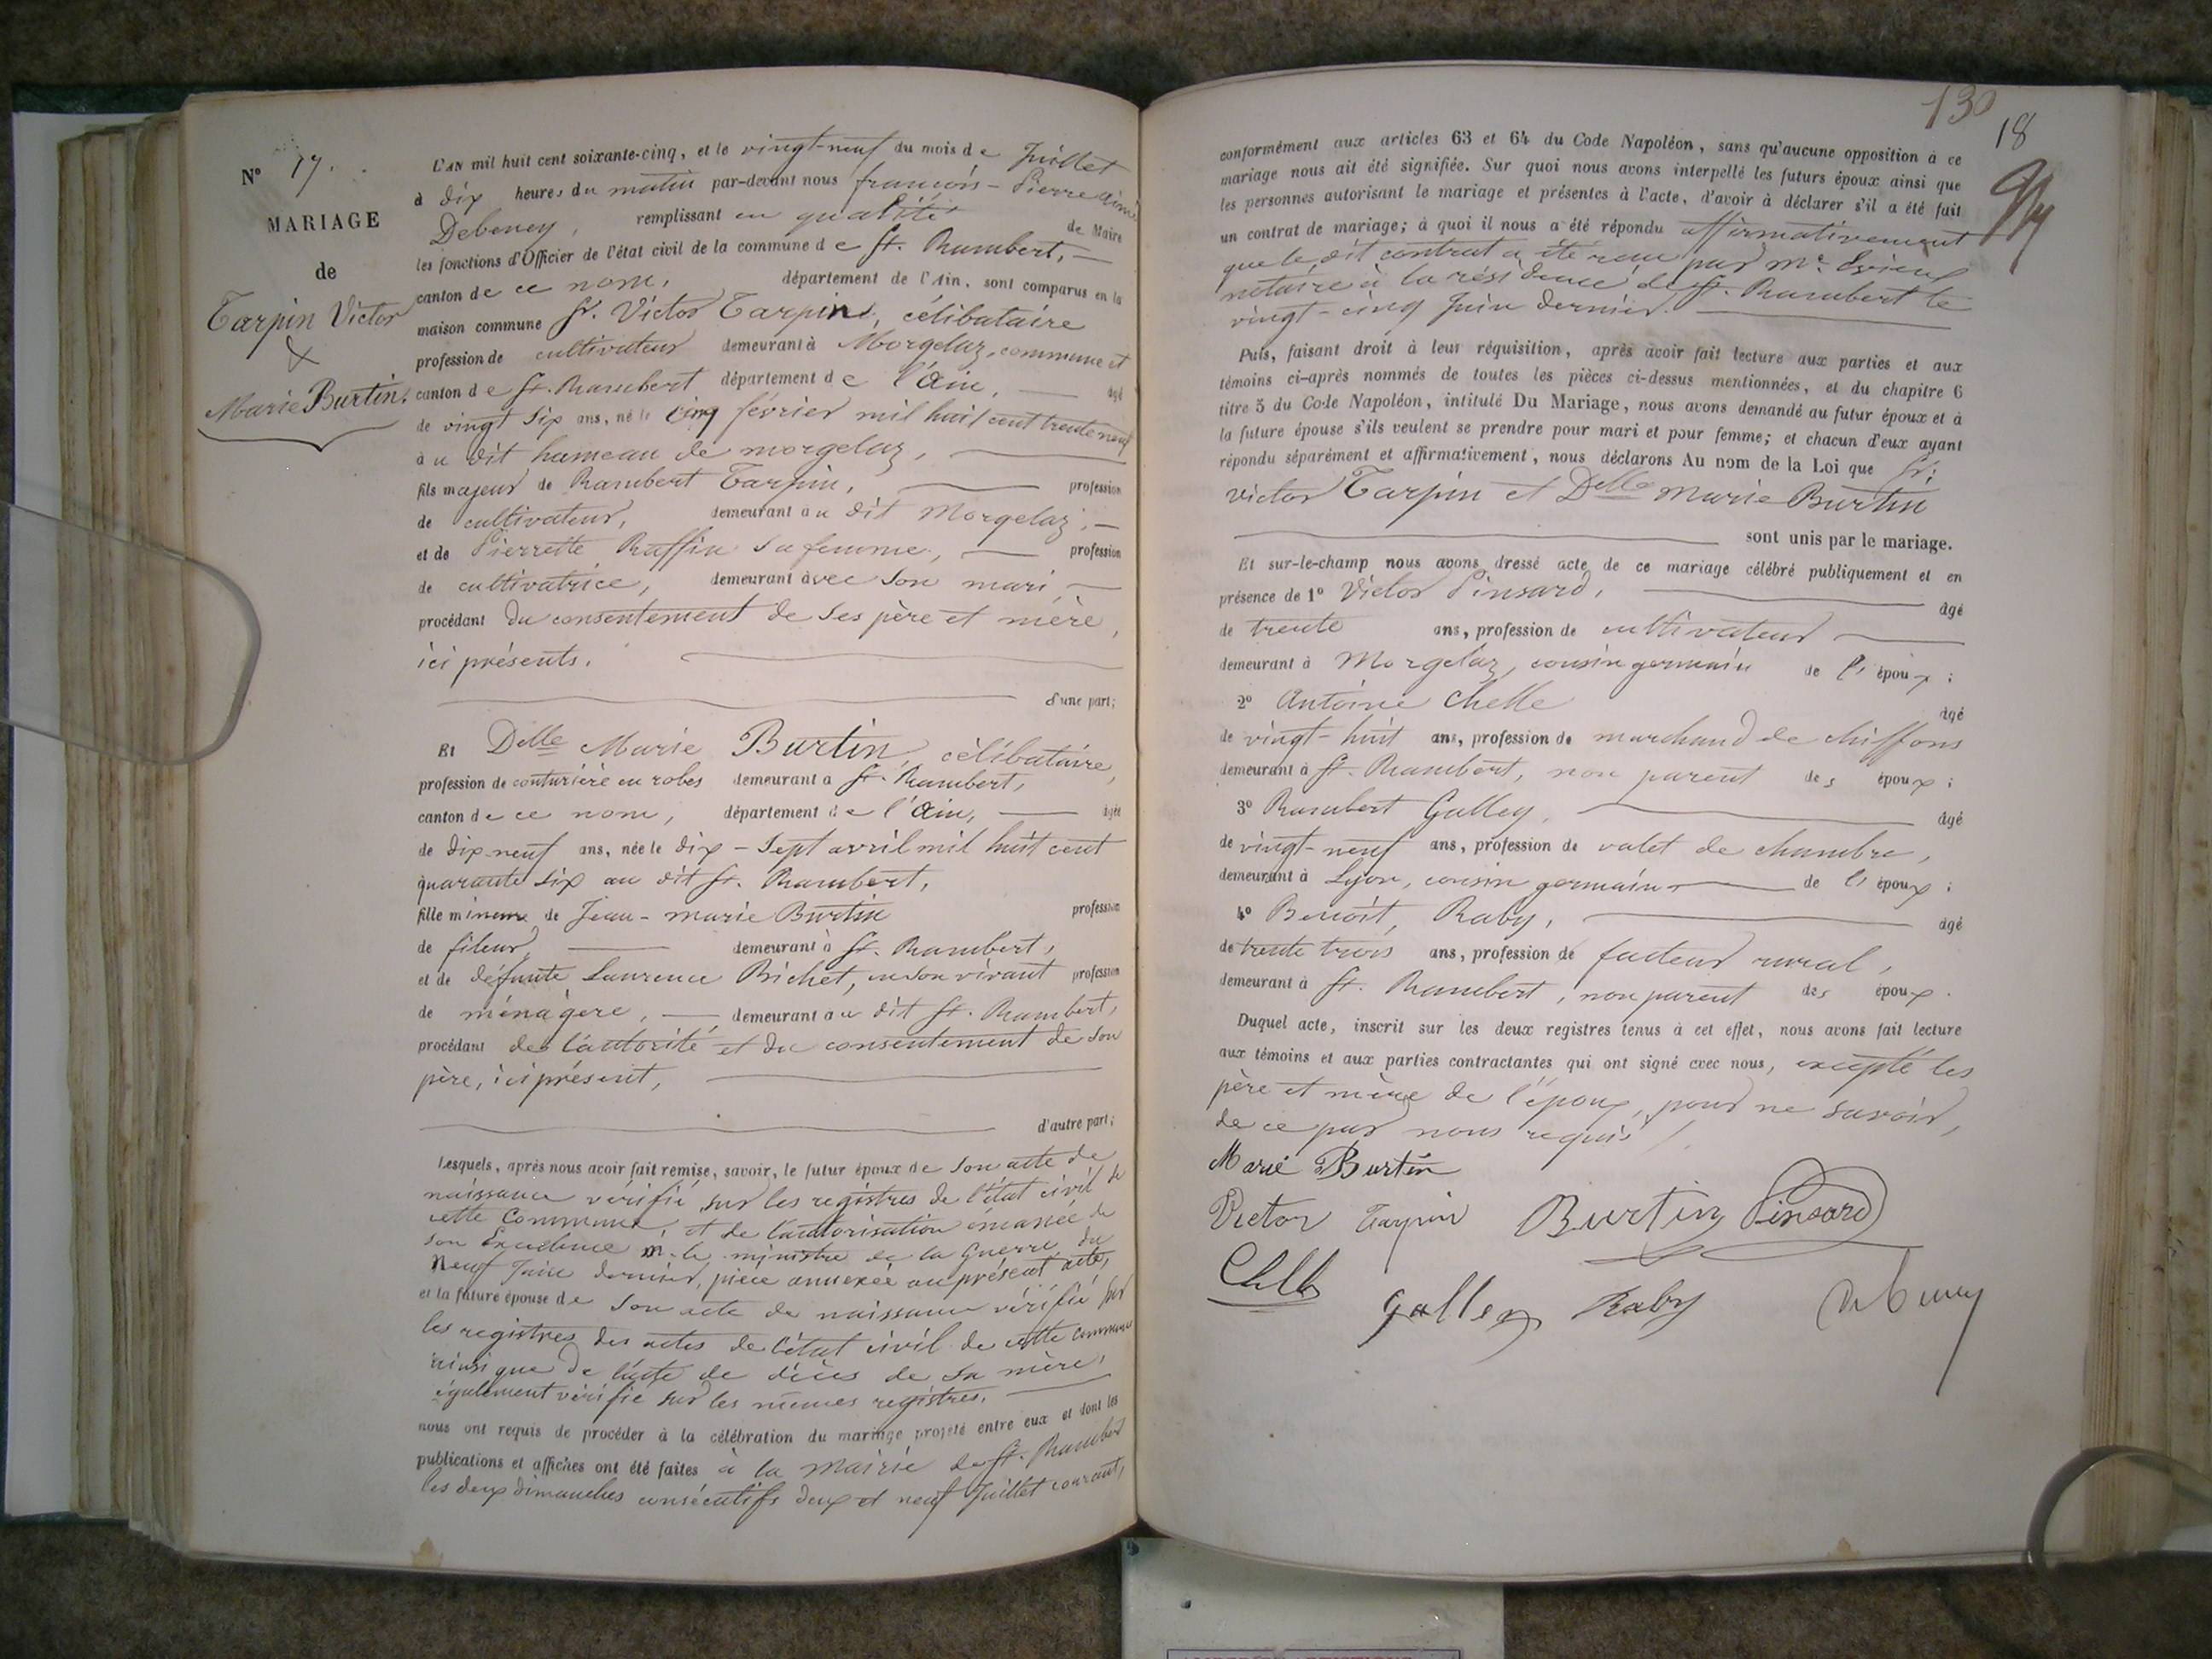 N° 17.
MARIAGE
de
Tarpin Victor
&
Marie Burtin.
L'AN mil huit cent soixante-cinq, et le vingt-neuf du mois de Juillet
à dix heures du matin par-devant nous françois-Pierre Aimé
Debeney, remplissant en qualité de Maire
les fonctions d'Officier de l'état civil de la commune de St. Rambert,
canton de ce nom, département de l'Ain, sont comparus en la
maison commune Sr. Victor Tarpin, célibataire
profession de cultivateur demeurant à Morgelaz, commune et
canton de St. Rambert département de l'Ain, âgé
de vingt six ans, né le cinq février mil huit cent trente neuf
au dit hameau de morgelaz,
fils majeur de Rambert Tarpin, profession
de cultivateur, demeurant au dit Morgelaz,
et de Pierrette Ruffin sa femme, profession
de cultivatrice, demeurant avec son mari,
procédant du consentement de ses père et mère,
ici présents.
d'une part;
Et Delle Marie Burtin, célibataire,
profession de couturière en robes demeurant à St. Rambert,
canton de ce nom, département de l'Ain, âgée
de dix-neuf ans, née le dix-sept avril mil huit cent
quarante six au dit St. Rambert,
fille mineure de Jean-marie Burtin profession
de fileur, demeurant à St. Rambert,
et de défunte Laurence Bichet, en son vivant profession
de ménagère, demeurant au dit St. Rambert,
procédant de l'autorité et du consentement de son
père, ici présent,
d'autre part;
Lesquels, après nous avoir fait remise, savoir, le futur époux de son acte de
naissance vérifié sur les registres de l'état civil de
cette Commune, et de l'autorisation émanée de
son Excellence m. le ministre de la Guerre, du
Neuf Juin dernier, pièce annexée au présent acte,
et la future épouse de son acte de naissance vérifié sur
les registres des actes de l'état civil de cette commune
ainsi que de l'acte de décès de sa mère,
également vérifié sur les mêmes registres.
nous ont requis de procéder à la célébration du mariage projeté entre eux et dont les
publications et affiches ont été faites à la Mairie de St. Rambert
les deux dimanches consécutifs deux et neuf Juillet courant,
130
18
conformément aux articles 63 et 64 du Code Napoléon, sans qu'aucune opposition à ce
mariage nous ait été signifiée. Sur quoi nous avons interpellé les futurs époux ainsi que
les personnes autorisant le mariage et présentes à l'acte, d'avoir à déclarer s'il a été fait
un contrat de mariage; à quoi il nous a été répondu affirmativement
que le dit contrat a été reçu par Mr.
notaire à la résidence de St. Rambert le
vingt-cinq Juin dernier.
Puis, faisant droit à leur réquisition, après avoir fait lecture aux parties et aux
témoins ci-après nommés de toutes les pièces ci-dessus mentionnées, et du chapitre 6
titre 5 du Code Napoléon, intitulé Du Mariage, nous avons demandé au futur époux et à
la future épouse s'ils veulent se prendre pour mari et pour femme; et chacun d'eux ayant
répondu séparément et affirmativement, nous déclarons Au nom de la Loi que Sr.
victor Tarpin et Delle Marie Burtin
sont unis par le mariage.
Et sur-le-champ nous avons dressé acte de ce mariage célébré publiquement et en
présence de 1° Victor Pinsard, âgé
de trente ans, profession de cultivateur
demeurant à Morgelaz, cousin germain de l'époux;
2° Antoine Chelle âgé
de vingt-huit ans, profession de marchand de chiffons
demeurant à St. Rambert, non parent des époux;
3° Rambert Galley, âgé
de vingt-neuf ans, profession de valet de chambre,
demeurant à Lyon, cousin germain de l'époux;
4° Benoit, Raby, âgé
de trente trois ans, profession de facteur rural,
demeurant à St. Rambert, non parent des époux.
Duquel acte, inscrit sur les deux registres tenus à cet effet, nous avons fait lecture
aux témoins et aux parties contractantes qui ont signé avec nous, excepté les
père et mère de l'époux, pour ne savoir,
de ce par nous requis.
Marie Burtin
Victor Tarpin Burtin Pinsard
Chelle
Galley Raby Debeney